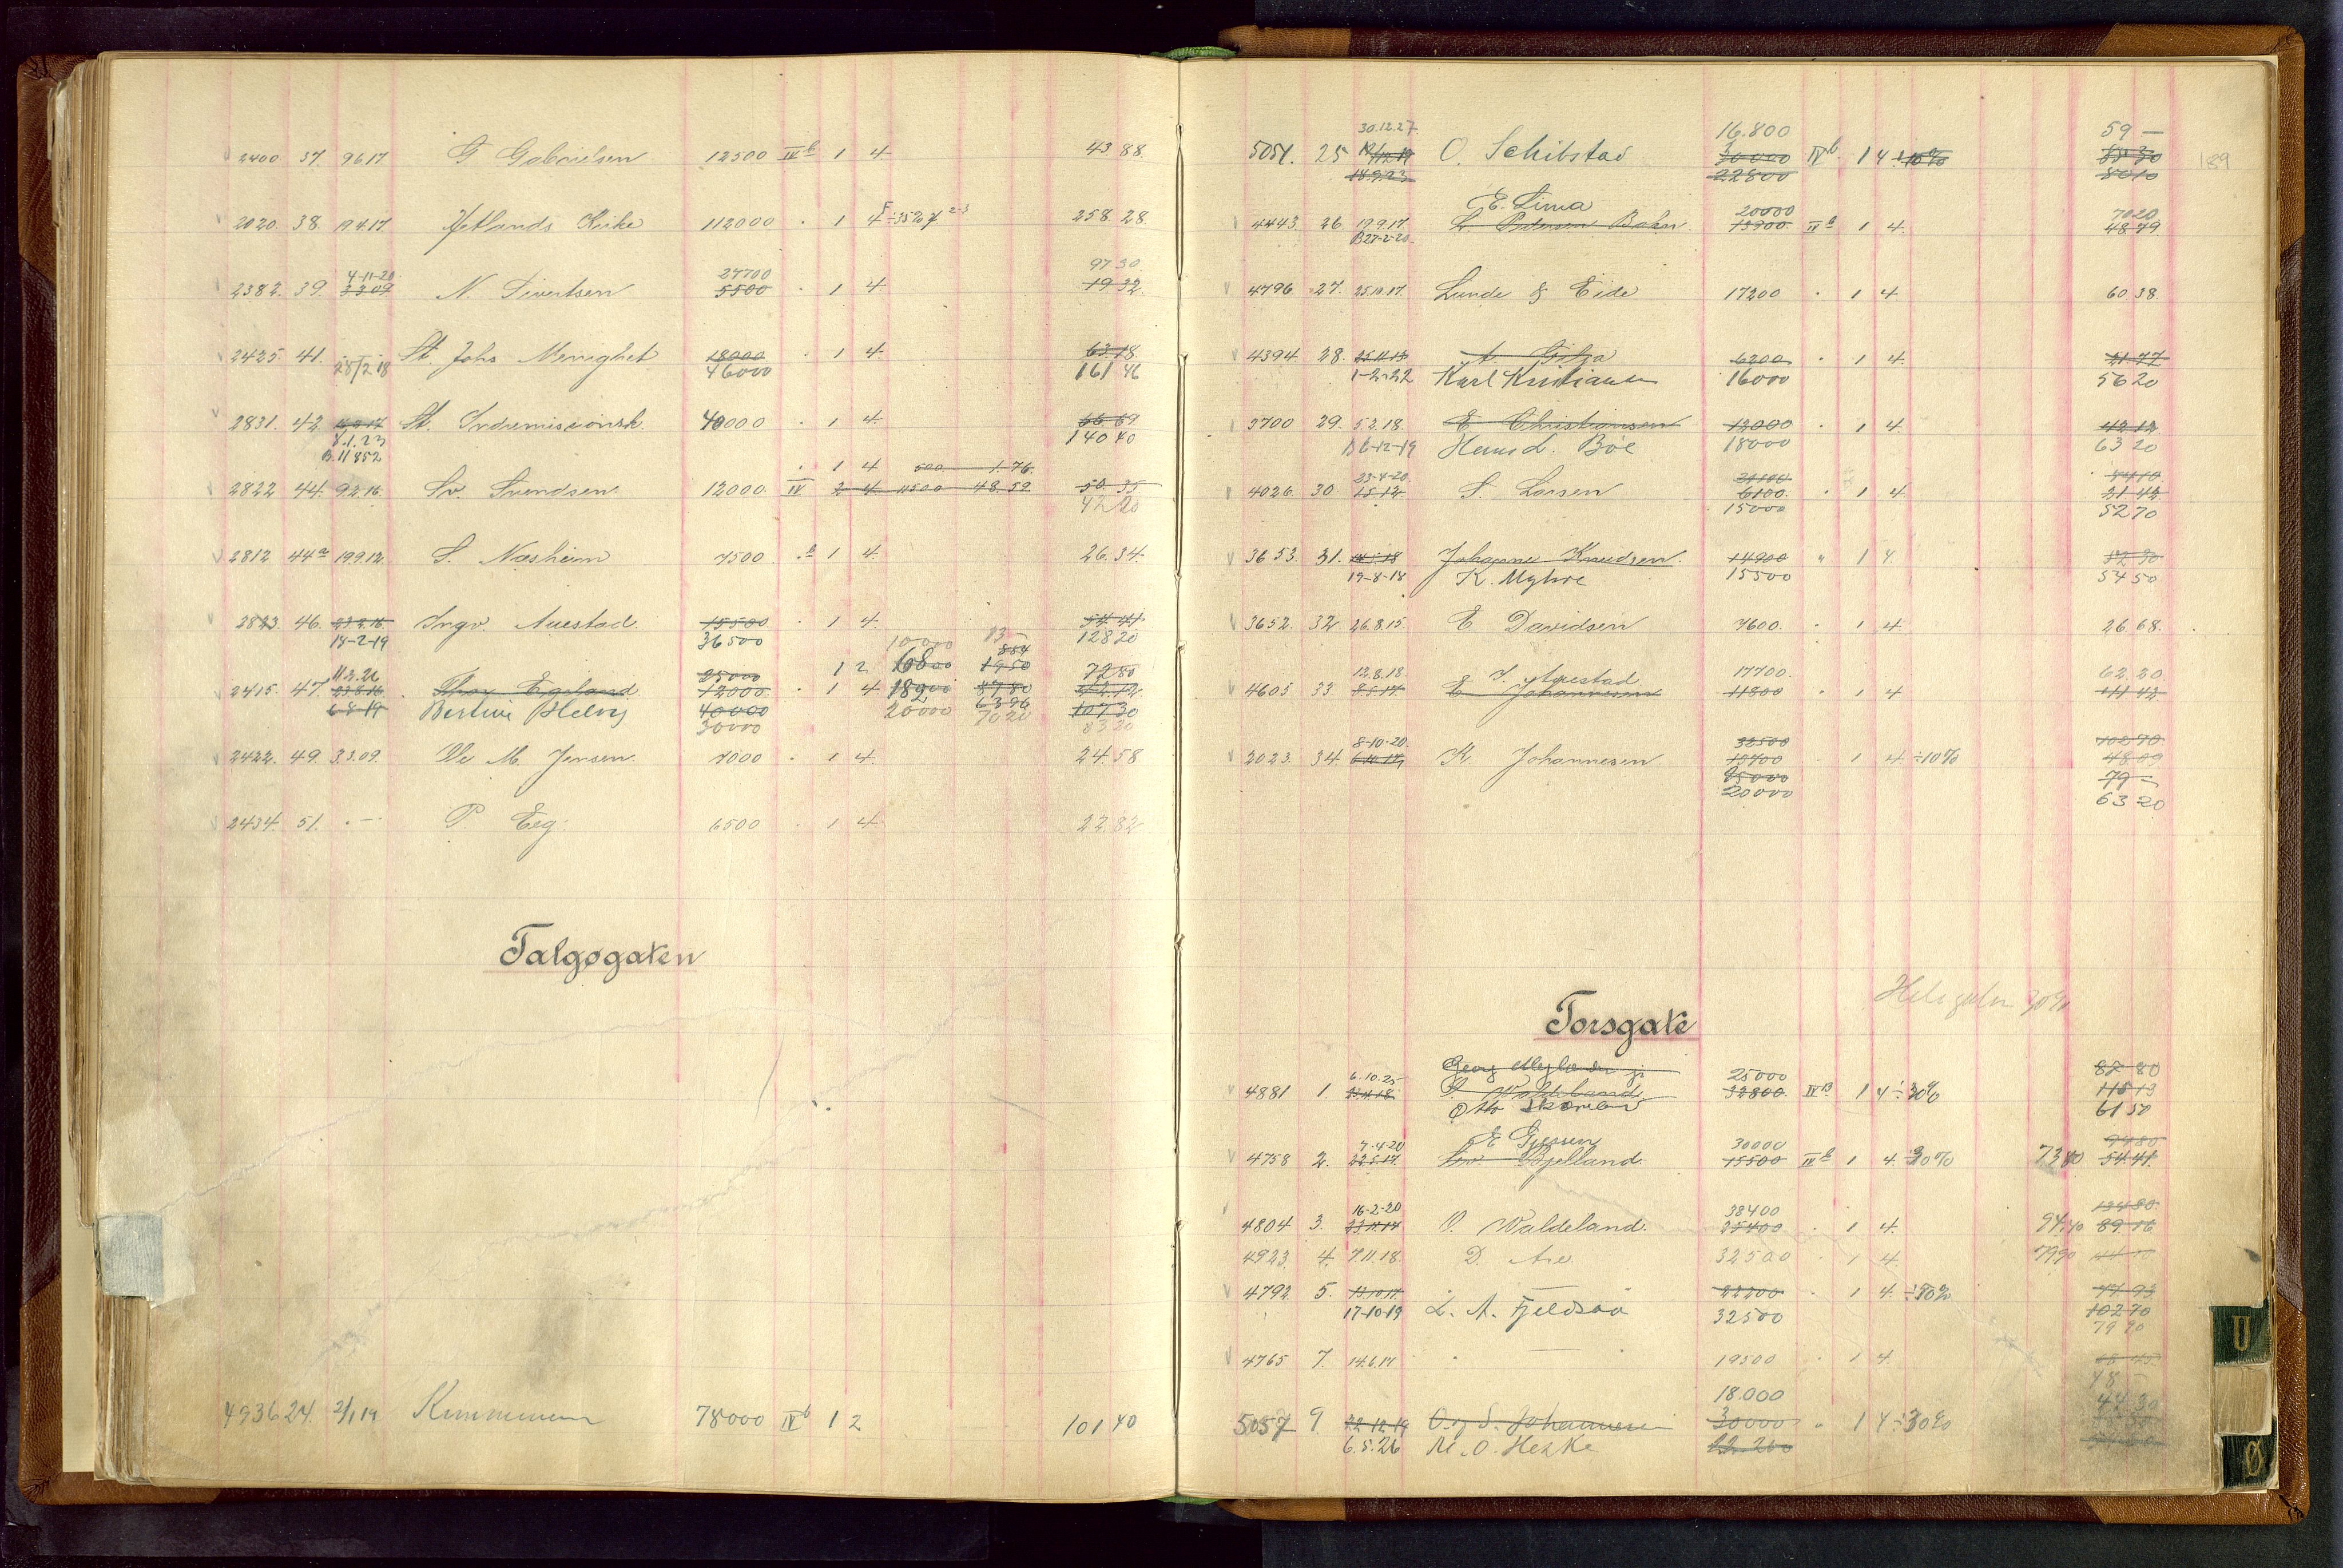 2400. 37. 9617 G Gabrielsen 12500 IV b 1 4 43 88
2020. 38. 19.4.17 Hetlands Kirke 112000 · 1 4 258 28
4-11-20 27700 97 30
2382. 39. 3309 N. Sivertsen 5500 · 1 4 19 32
2425. 41. St Johs Menighet 18000 · 1 4 63.18
28/2 18 46000 161 46
2831. 42 St. Indremissionsh. 40000 · 1 4 66 69
8.1.23 140 40
B.11852
· 1 4 500. 1.76.
2822 44. 9.2.16. Sv. Svendsen 12000. IV 2 4 11500 48.59 50.35
42 20
2812 44a 19.9.12 S. Næsheim 7500 1 4 26.34.
2823. 46. 23.2.16. Ingv. Auestad 15500 · 1 4. 54 41
18-2-19 36500 128 20
10000 13 —
11.2.26 25000 1 2 16800 1950 72 80
2415. 47. 23.8.16 Thor Egeland 12000. · 1 4 18200 42.12
6-8-19 Bertine Helvig 40000 20000 70 20 107 30
30000 83 20
2422. 49. 3.3.09. Ole M. Jensen 7000 · 1 4. 24.58
2434. 51. · — · P. Eeg 6500 · 1 4 22.82
Talgøgaten
4936 24. 2/1 19 Kommunen 78000 IV b 1 2 101 40
30.12.27. 16.800 59 —
5051. 25 O. Schibstad 30000 IV b. 1 4 ÷10% 189
18.9.23 22800 80 10
E. Lima 20000 70 20
4443. 26. 19.9.17. L. Pedersen Bakn. 13900. 1 4. 48 79.
B27-2-20.
4796. 27. 25.10.17. Lunde & Eide 17200 · 1 4 60 38.
4394. 28. 25.11.13 A Gilja 6200 · 1 4. 21.77
1-2-22 Karl Kristiansen 16000 56 20
3700 29. 5.2.18. E Christiansen 12000 · 1 4. 42 12
B 6-12-19 Hans L. Bøe 18000 63 20
23-4-20
4026. 30. 15.12. S. Larsen 6100. · 1 4 21 42.
15000 52 70
3653. 31. 14.5.18 Johanne Knudsen 14900 " 1 4 52 30
19-8-18 K. Myhre 15500 54 50
3652. 32. 26.8.15. E Davidsen 7600. · 1 4. 26.68.
12.8.18. S. Auestad 17700. 62 20
4605 33 8.5.17 E Johannesen 11800 · 1 4 41 42
8-10-20. 32500 102 70
2023. 34. K Johannesen 13700 · 1 4 ÷10% 48 09
25000 79 —
20000 63 20
Torsgate
6.10.25 25000 87 80
4881 1. 32800 IV B 1 4 ÷30% 115 13
61 50
7-4-20 E Gjessen 30000
4758 2. 22.5.17. Bjelland 15500 IV b 1 4. 30% 73 80 54.41.
16-2-20 38400 134 80
4804 3. 23.11.17 O. Waldeland. 25400 · 1 4. 94.40 89 16
4923. 4. 7.11.18. D. Aie 32500 · 1 4. 79 90
4792 5. 13.10.17. · — 22200 · 1 4. ÷30% 77 93
17-10-19 L. A. Fjeldsaa 32500 102 70
79 90
4765 7. 14.6.17 · — 19500 · 1 4. 68 45
18.000 48 —
5057 9 22-12-19 O. g S. Johannesen 30000 " 1 4 ÷30%
6.5.26 M. O. Hekke 22 200
U
Ø